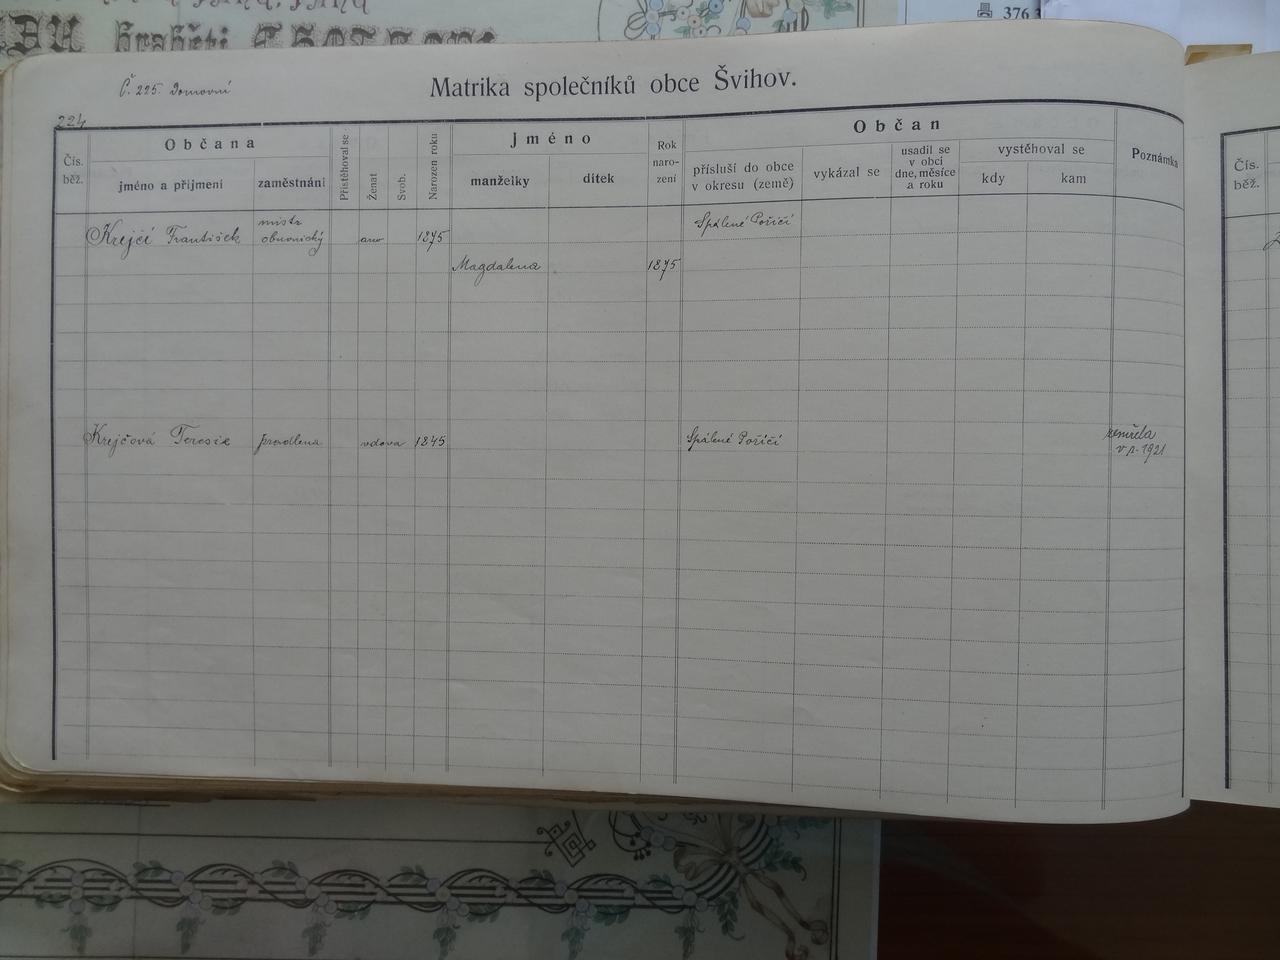 376 3
Č. 225. Domovní
Matrika společníků obce Švihov.
224
Čís.
běž.
Občana
jméno a příjmení
zaměstnání
Přistěhoval se
Ženat
Svob.
Narozen roku
Jméno
manželky
dítek
Rok
naro-
zení
Občan
přísluší do obce
v okresu (země)
vykázal se
usadil se
v obci
dne, měsíce
a roku
vystěhoval se
kdy
kam
Poznámka
Čís.
běž.
Krejčí František
mistr
obuvnický
ano
1875
Spálené Poříčí
Magdalena
1875
Krejčová Teresie
pradlena
vdova
1845
Spálené Poříčí
zemřela
v r. 1921